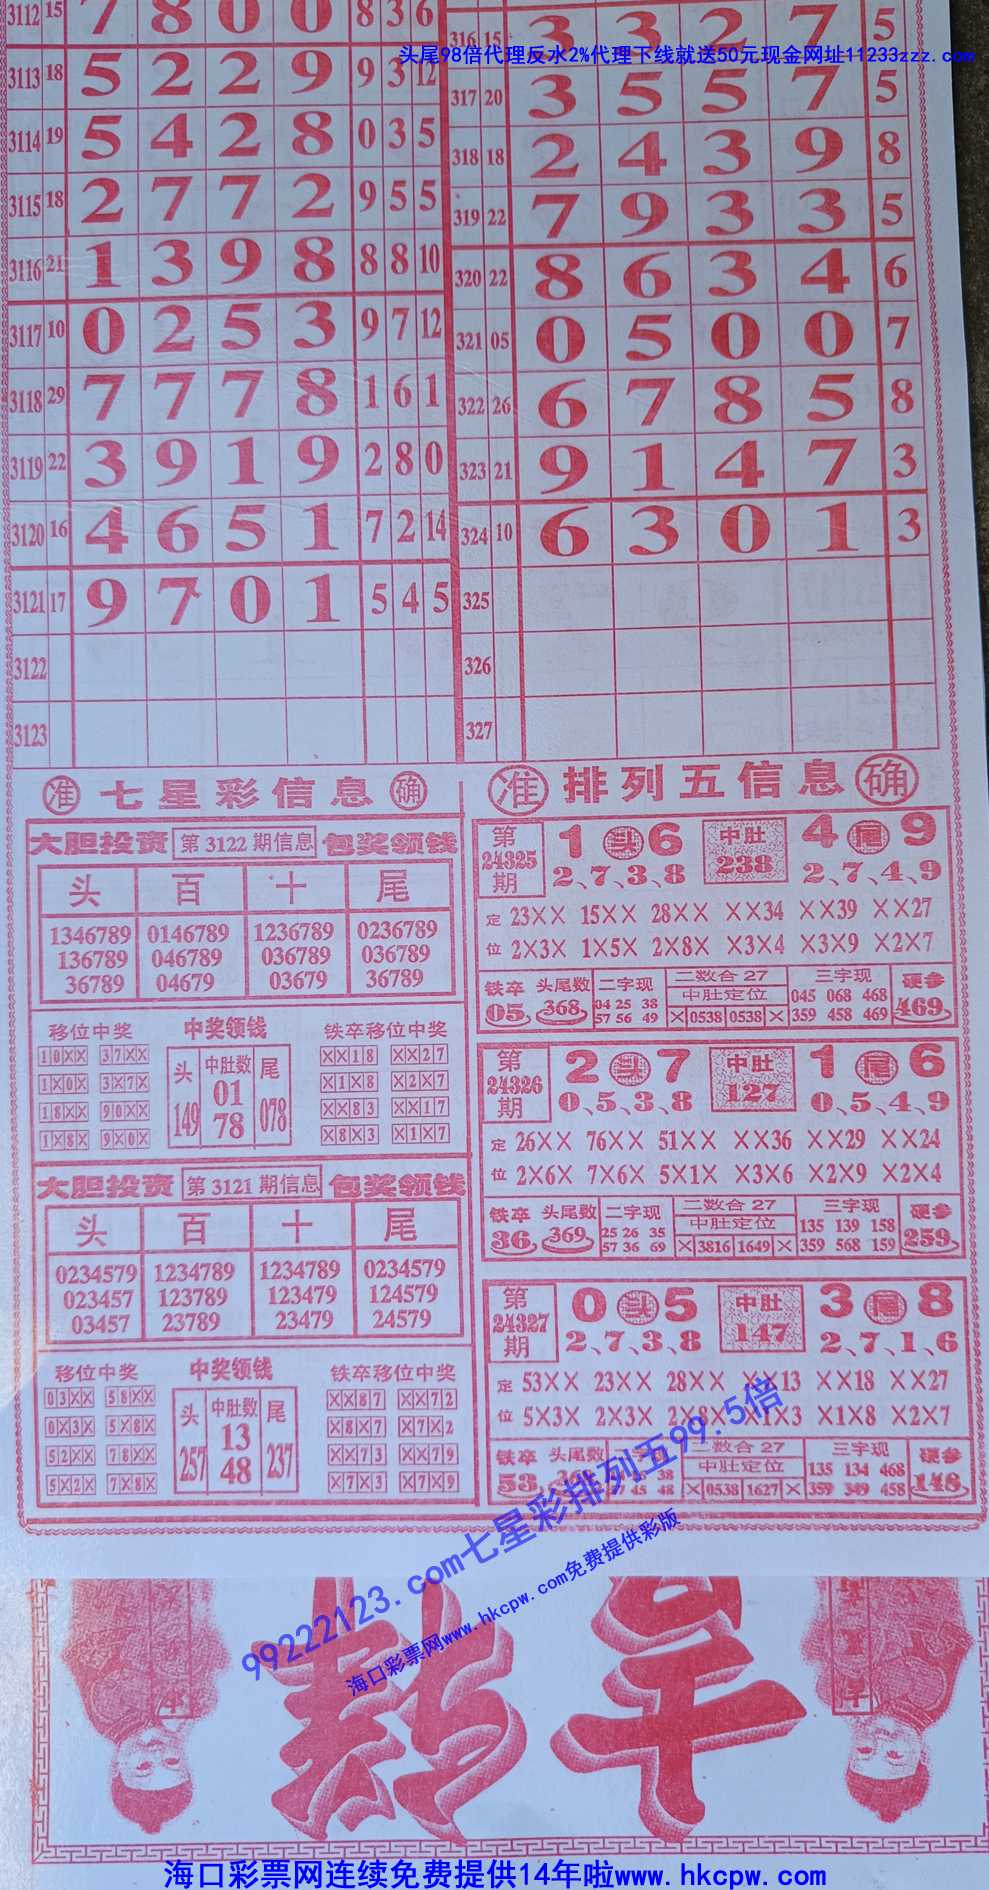 3112 15 7 8 0 0 8 3 6
3113 18 5 2 2 9 9 3 12
3114 19 5 4 2 8 0 3 5
3115 18 2 7 7 2 9 5 5
3116 21 1 3 9 8 8 8 10
3117 10 0 2 5 3 9 7 12
3118 29 7 7 7 8 1 6 1
3119 22 3 9 1 9 2 8 0
3120 16 4 6 5 1 7 2 14
3121 17 9 7 0 1 5 4 5
3122
3123
316 15 3 3 2 7 5
头尾98倍代理反水2%代理下线就送50元现金网址11233zzz.com
317 20 3 5 5 7 5
318 18 2 4 3 9 8
319 22 7 9 3 3 5
320 22 8 6 3 4 6
321 05 0 5 0 0 7
322 26 6 7 8 5 8
323 21 9 1 4 7 3
324 10 6 3 0 1 3
325
326
327
准 七星彩信息 确
大胆投资 第3122期信息 包奖领钱
头 百 十 尾
1346789 0146789 1236789 0236789
136789 046789 036789 036789
36789 04679 03679 36789
移位中奖 中奖领钱 铁卒移位中奖
10XX 37XX
1X0X 3X7X
18XX 90XX
1X8X 9X0X
头 中肚数 尾
149 01 078
78
XX18 XX27
X1X8 X2X7
XX83 XX17
X8X3 X1X7
大胆投资 第3121期信息 包奖领钱
头 百 十 尾
0234579 1234789 1234789 0234579
023457 123789 123479 124579
03457 23789 23479 24579
移位中奖 中奖领钱 铁卒移位中奖
03XX 58XX
0X3X 5X8X
52XX 78XX
5X2X 7X8X
头 中肚数 尾
257 13 237
48
XX87 XX72
X8X7 X7X2
XX73 XX79
X7X3 X7X9
准 排列五信息 确
第24325期 1头6 中肚 4尾9
2、7、3、8 238 2、7、4、9
定 23XX 15XX 28XX XX34 XX39 XX27
位 2X3X 1X5X 2X8X X3X4 X3X9 X2X7
铁卒 头尾数 二字现 二数合27 三字现 硬参
05 368 04 25 38 中肚定位 045 068 468 469
57 56 49 X 0538 0538 X 359 458 469
第24326期 2头7 中肚 1尾6
0、5、3、8 127 0、5、4、9
定 26XX 76XX 51XX XX36 XX29 XX24
位 2X6X 7X6X 5X1X X3X6 X2X9 X2X4
铁卒 头尾数 二字现 二数合27 三字现 硬参
36 369 25 26 35 中肚定位 135 139 158 259
57 36 69 X 3816 1649 X 359 568 159
第24327期 0头5 中肚 3尾8
2、7、3、8 147 2、7、1、6
定 53XX 23XX 28XX XX13 XX18 XX27
位 5X3X 2X3X 2X8X X1X3 X1X8 X2X7
铁卒 头尾数 二数合27 三字现 硬参
53 38 中肚定位 135 134 468 148
45 48 X 0538 1627 X 359 349 458
99222123.com七星彩排列五99.5倍
海口彩票网www.hkcpw.com免费提供彩版
海口彩票网连续免费提供14年啦www.hkcpw.com